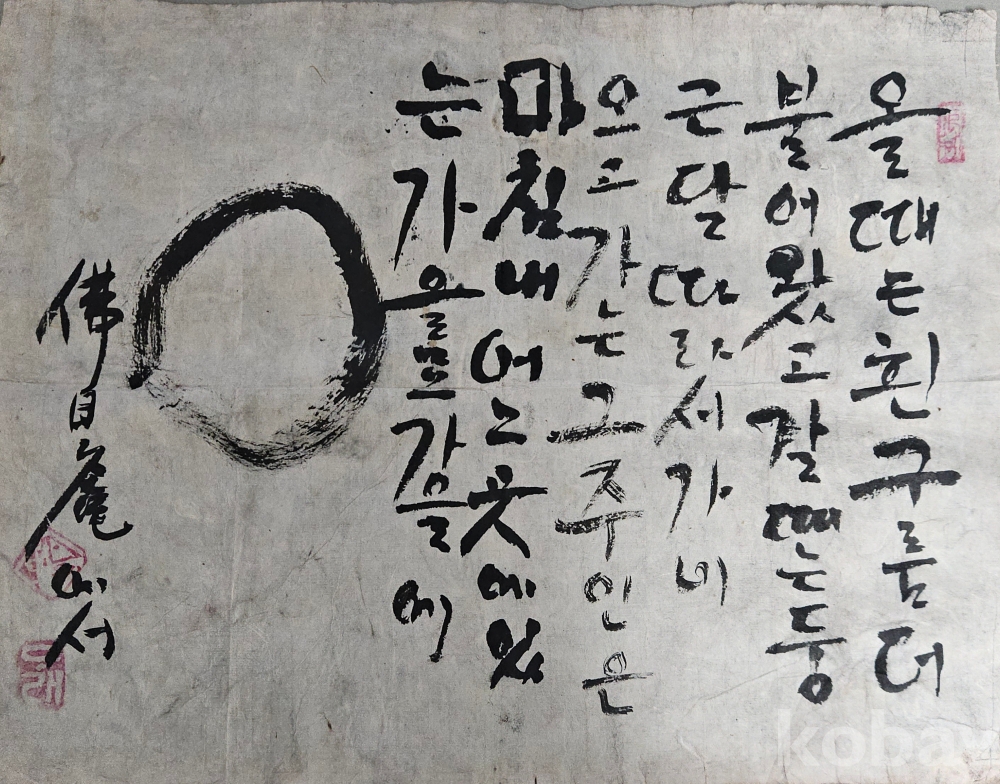 올때는흰구름더
불어왔고갈때는둥
근달따라서가네
오고가는그주인은
마침내어느곳에있
는가을묘가을에
佛日庵에서
kobay